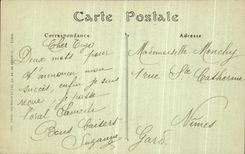 Carte Postale
Correspondance
Adresse
Cher Ugo
Deux mots pour
t'annoncer mon
succès, enfin je suis
reçue, je passe
l'oral
Bons baisers
Suzanne
Mademoiselle Monchy
1 rue Ste Catherine
Nîmes
Gard